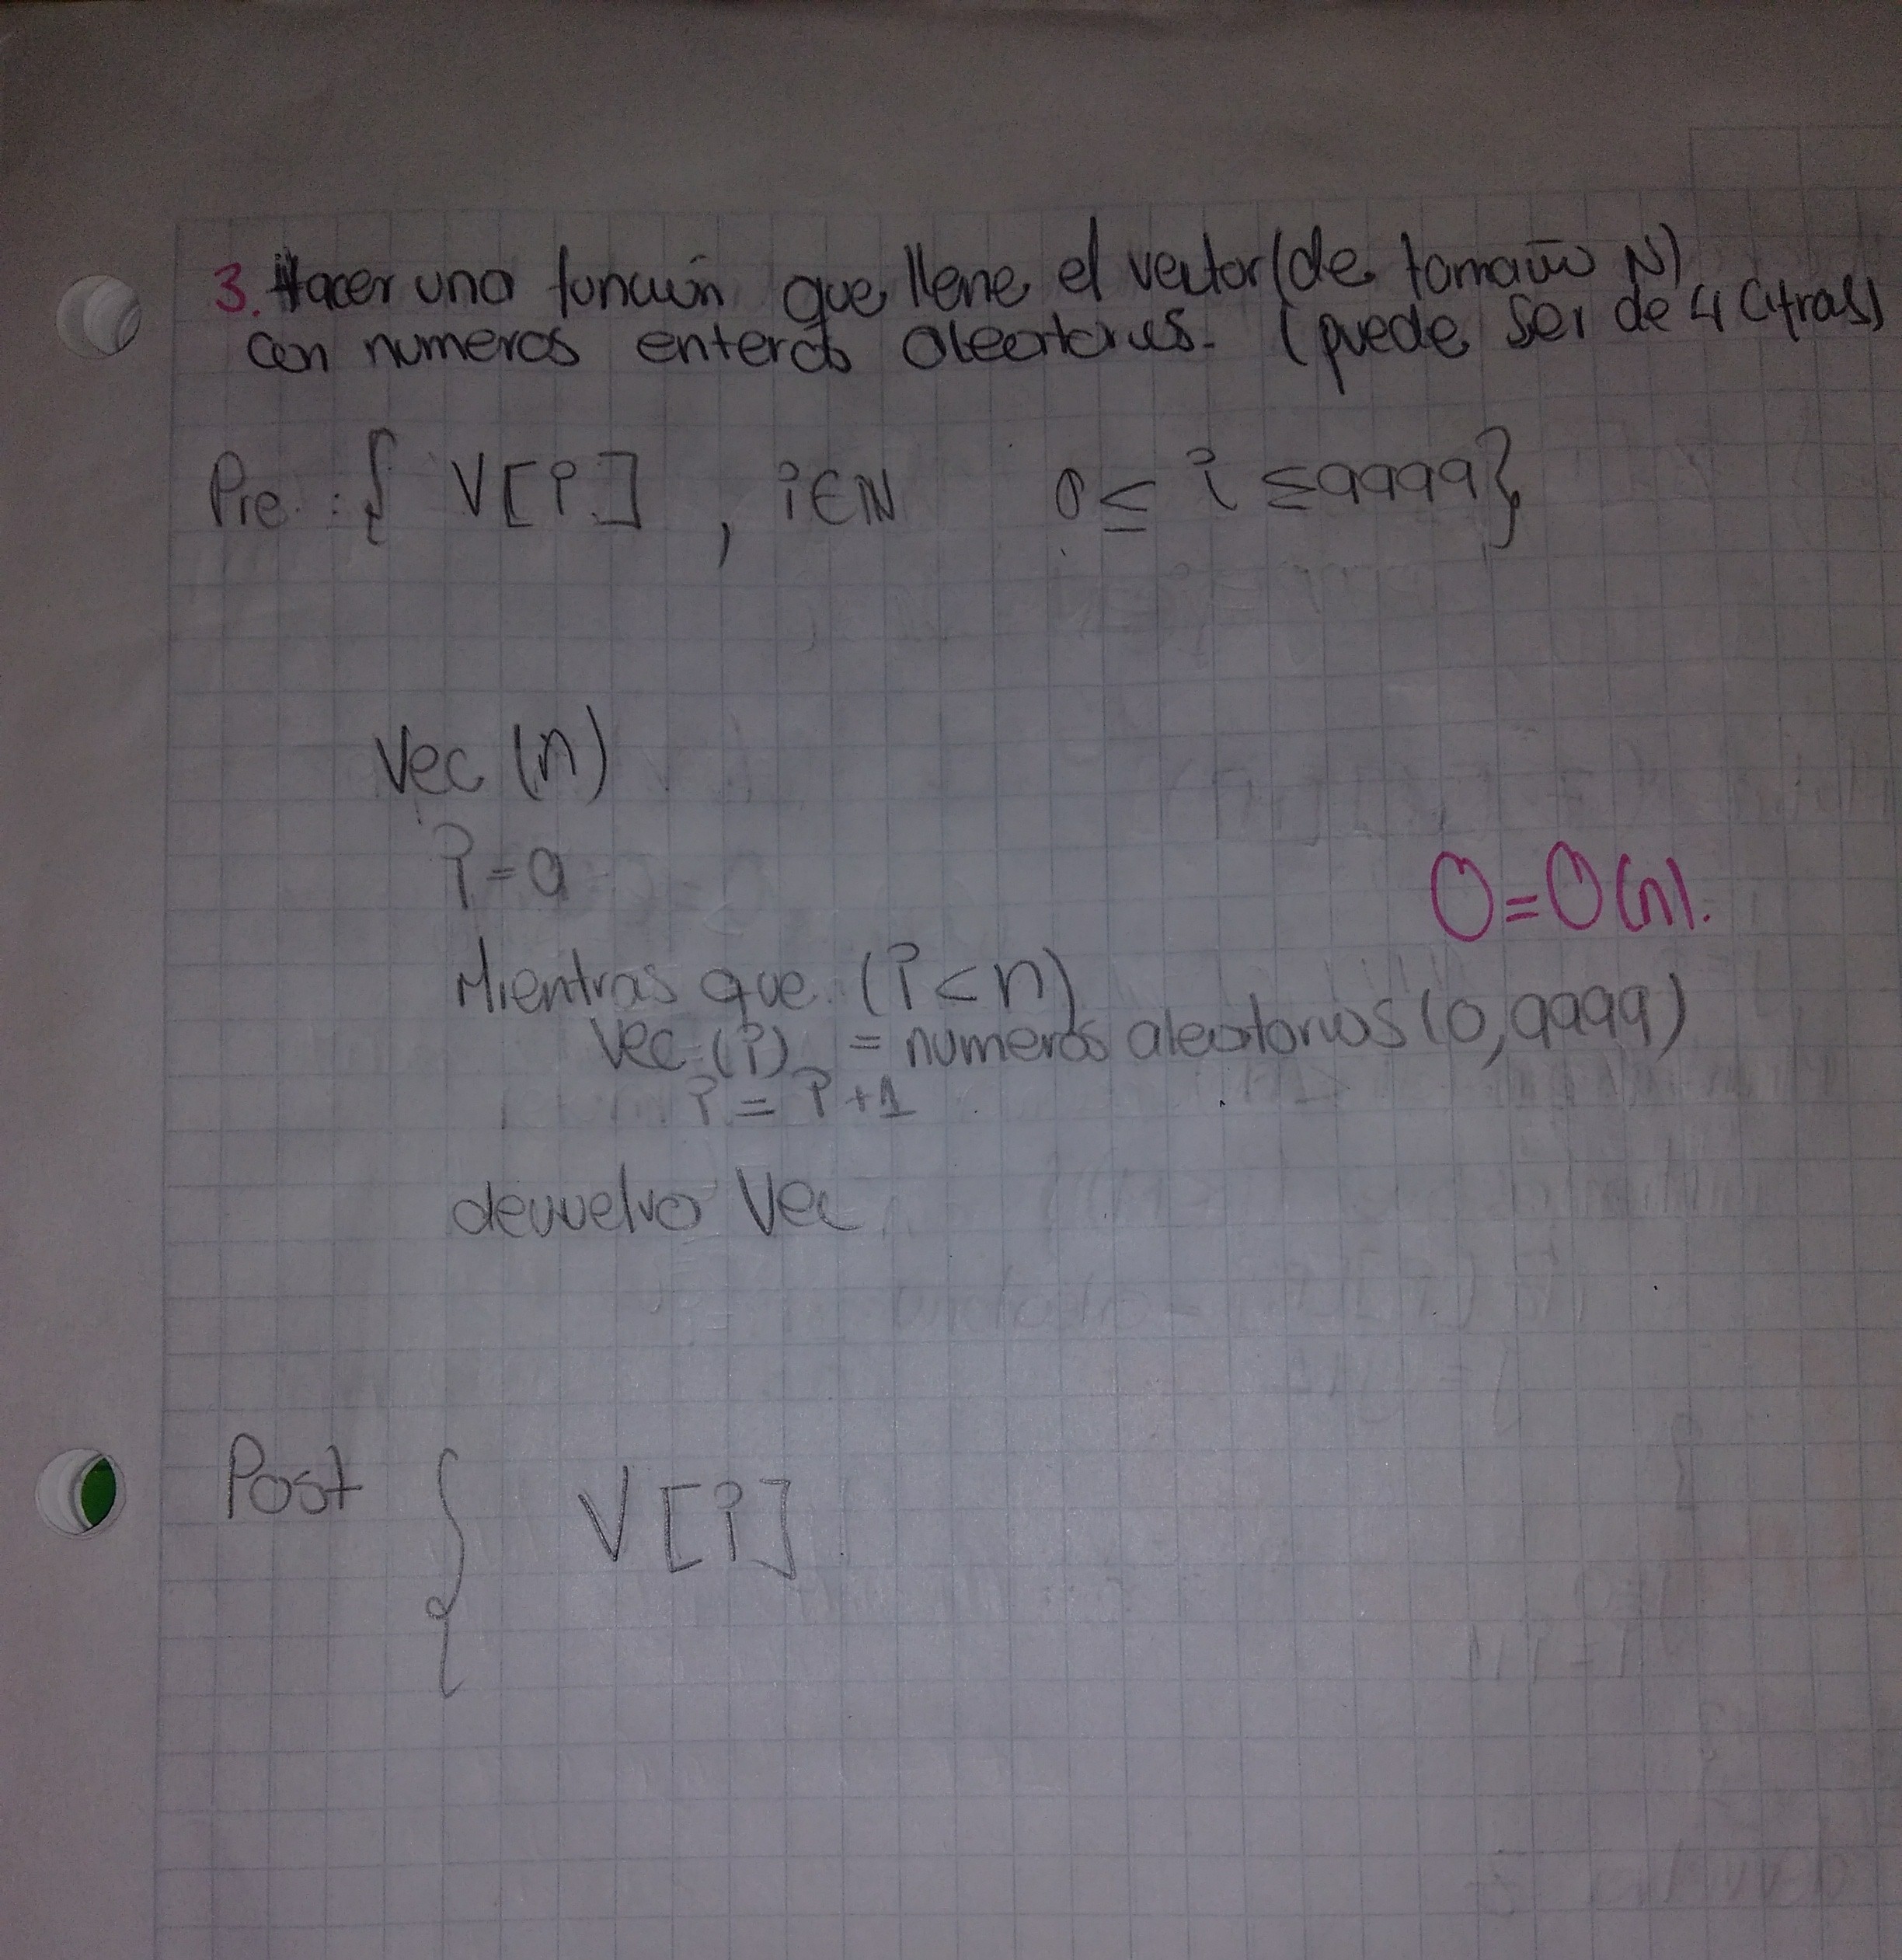 3. Hacer una función que llene el vector (de tamaño N)
con numeros enteros aleatorios. (puede ser de 4 cifras)
Pre : { V[i] , i∈N 0 ≤ i ≤ 9999}
Vec (n)
i = 0
Mientras que (i < n)
Vec (i) = numeros aleatorios (0, 9999)
i = i + 1
O = O(n).
devuelvo Vec
Post { V[i]